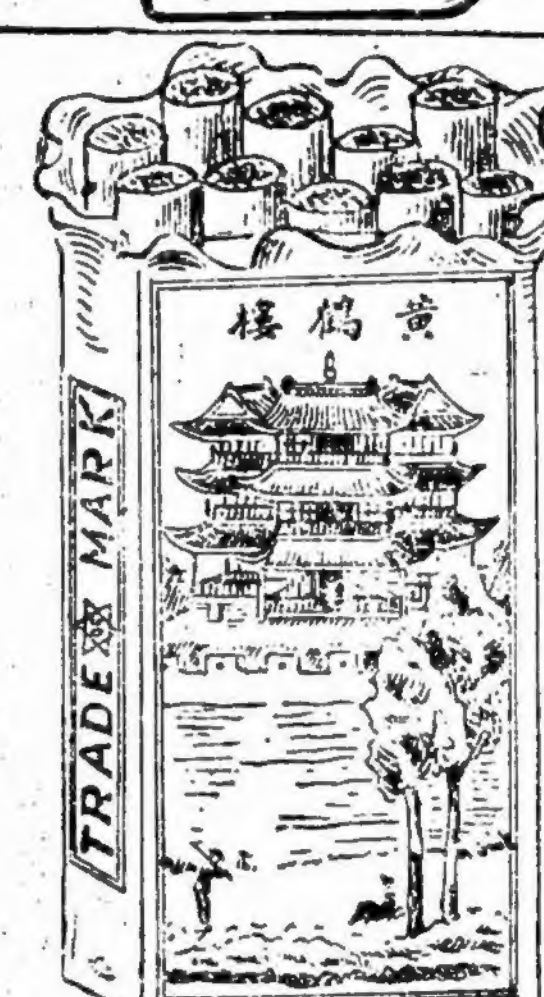 黃鶴樓
TRADE MARK